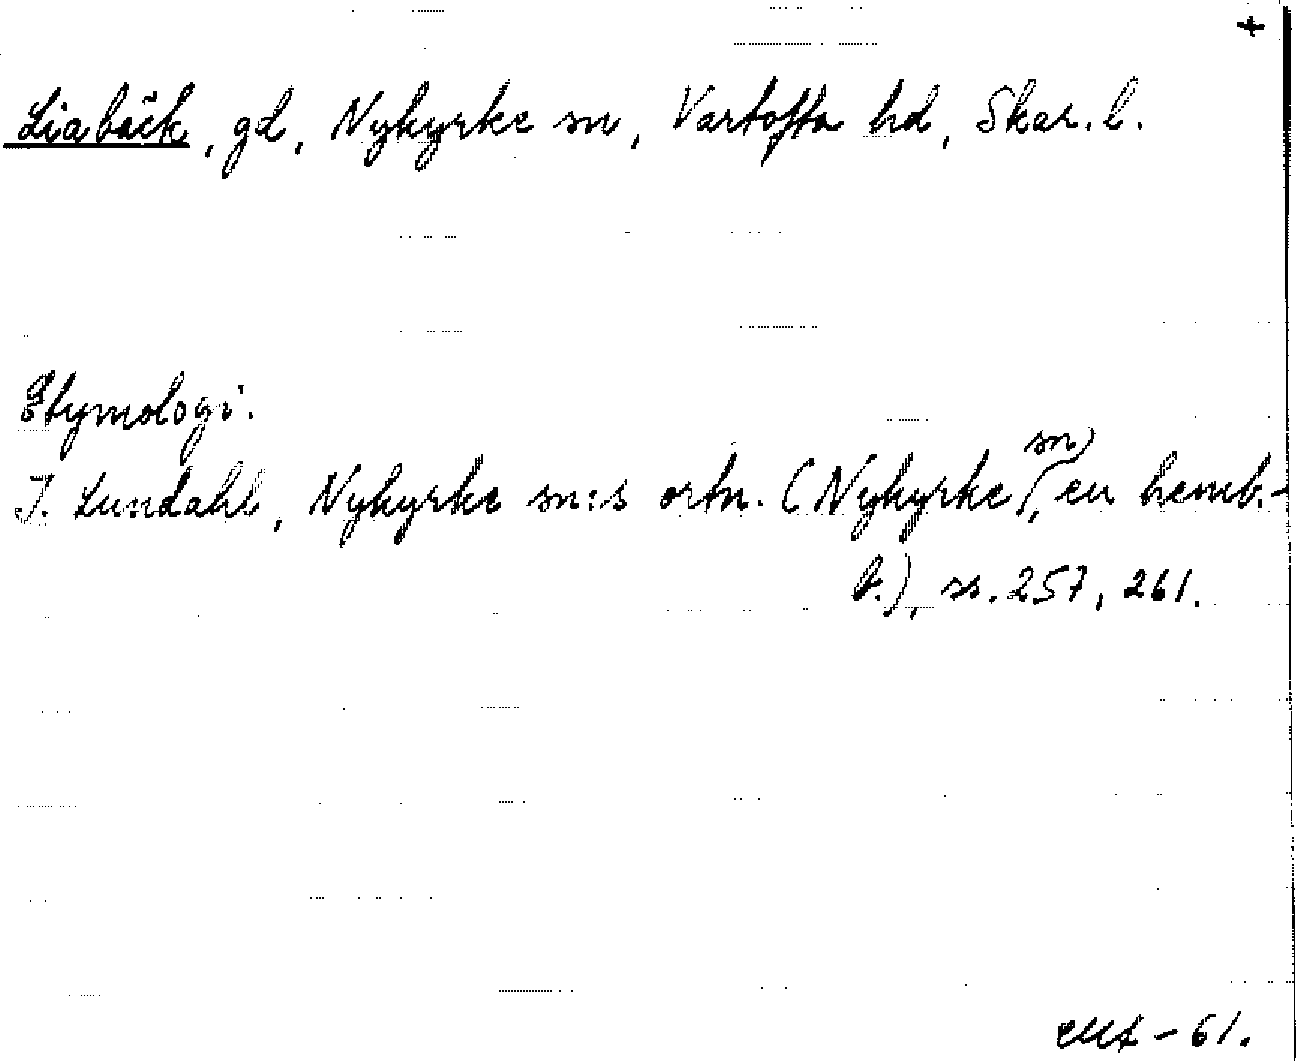 +
Liabäck, gd, Nykyrke sn, Vartofta hd, Skar. l.
Etymologi.
I. Lundahl, Nykyrke sn:s ortn. (Nykyrke sn, en hemb.-
b.), ss. 257, 261.
-61.